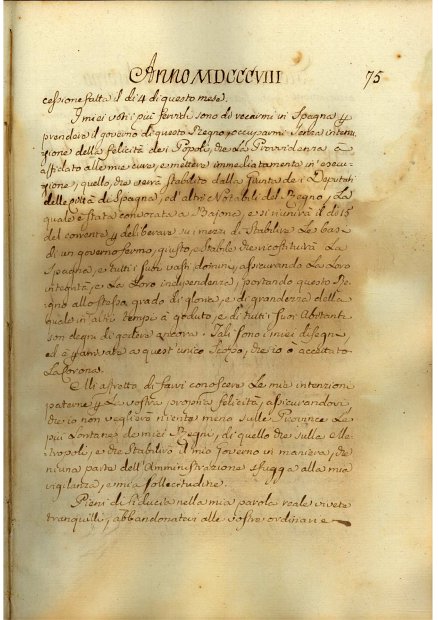 Anno MDCCCVIII 75
cessione fatta il dì 4 di questo mese.
I miei voti i più fervidi sono di recarmi in Spagna p
prendere il governo di questo Regno, occuparmi senza interru-
zione della felicità de i Popoli, che la Providenza à
affidato alle mie cure, e mettere immediatamente in esecu-
zione, quello, che verrà stabilito dalla Giunta de i Deputati
delle Città di Spagna, ed altri Notabili del Regno, la
quale è stata convocata a Bajona, e si riunirà il dì 15
del corrente p deliberare su i mezzi di stabilire le basi
di un governo fermo, giusto, e stabile che ricostituirà la
Spagna, e tutti i suoi vasti dominj, assicurando la loro
integrità, e la loro independenza, portando questo Re-
gno allo stesso grado di gloria, e di grandezza della
quale in altro tempo à goduto, e di cui i suoi Abitanti
son degni di godere ancora. Tali sono i miei disegni,
ed è p arrivare a quest'unico scopo, che io ò accettato
la Corona.
Mi affretto di farvi conoscere le mie intenzioni
paterne p la vostra propria felicità, assicurandovi
che io non veglierò niente meno sulle Province le
più lontane de miei Regni, di quello che sulla Me-
tropoli, e che stabilirò il mio Governo in maniera, che
niuna parte dell'Amministrazione sfugga alla mia
vigilanza, e mia sollecitudine.
Pieni di fiducia nella mia parola reale vivete
tranquilli, abbandonatevi alle vostre ordinarie